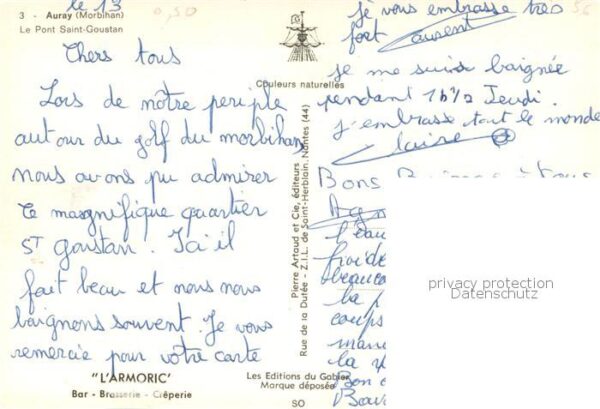 le 13
0,50
3 - Auray (Morbihan)
Le Pont Saint-Goustan
Chers tous
Lors de nôtre periple
autour du golf du morbihan
nous avons pu admirer
ce masgnifique quartier
ST goustan. Ici il
fait beau et nous nous
baignons souvent. Je vous
remercie pour votre carte
"L'ARMORIC"
Bar - Brasserie - Crêperie
Couleurs naturelles
Pierre Artaud et Cie, éditeurs
Rue de la Dutée - Z.I.L. de Saint-Herblain, Nantes (44)
Les Editions du Gabier
Marque déposée
SO
je vous embrasse très
fort
Laurent
je me suis baignée
pendant 1h½ Jeudi.
j'embrasse tout le monde
Claire
Bons
l'eau
froide
beauco
la
coups
la
Bon
privacy protection
Datenschutz